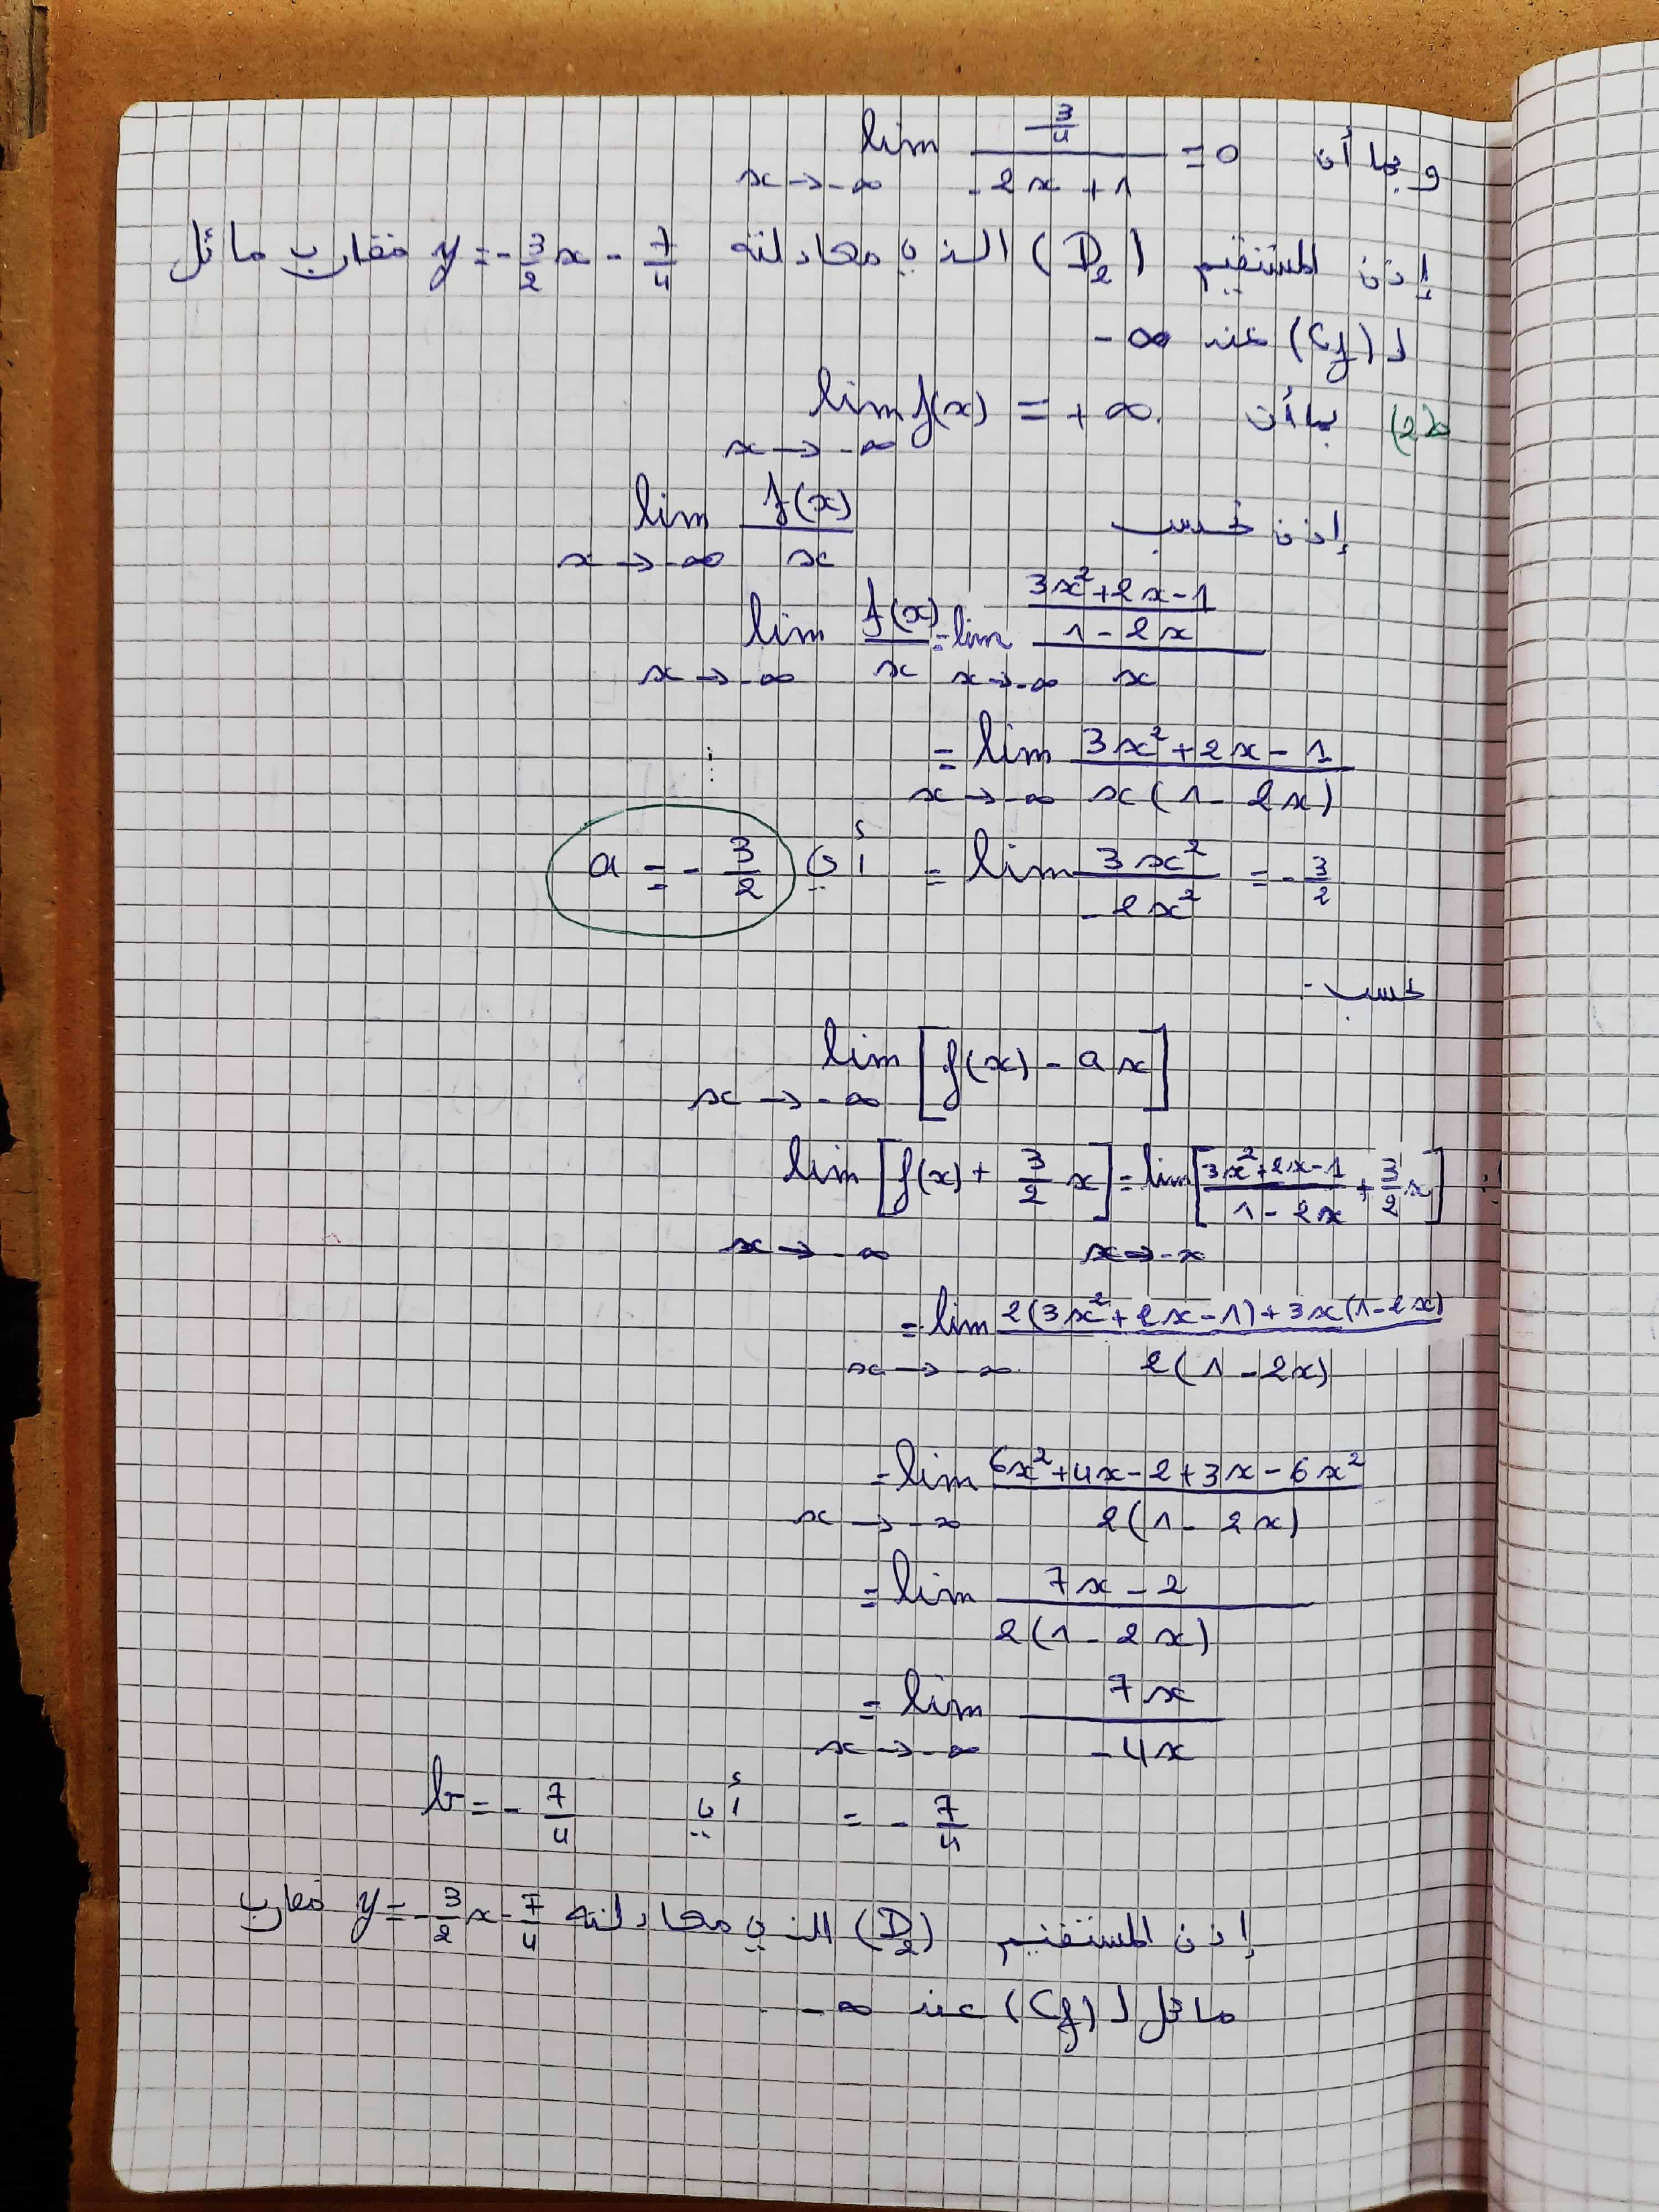 وبما أن lim x→-∞ (3/4)/(-2x+1) = 0
إذن المستقيم (D₂) الذي معادلته y = -3/2 x - 7/4 مقارب مائل
لـ (Cf) عند -∞
(2) بما أن lim x→-∞ f(x) = +∞
إذن نحسب lim x→-∞ f(x)/x
lim x→-∞ f(x)/x = lim x→-∞ ((3x²+2x-1)/(1-2x))/x
= lim x→-∞ (3x²+2x-1)/(x(1-2x))
= lim 3x²/-2x² = -3/2 أي a = -3/2
نحسب:
lim x→-∞ [f(x) - ax]
lim x→-∞ [f(x) + 3/2 x] = lim x→-∞ [(3x²+2x-1)/(1-2x) + 3/2 x]
= lim x→-∞ (2(3x²+2x-1)+3x(1-2x))/(2(1-2x))
= lim x→-∞ (6x²+4x-2+3x-6x²)/(2(1-2x))
= lim (7x-2)/(2(1-2x))
= lim x→-∞ 7x/-4x
= -7/4 أي b = -7/4
إذن المستقيم (D₂) الذي معادلته y = -3/2 x - 7/4 مقارب
مائل لـ (Cf) عند -∞